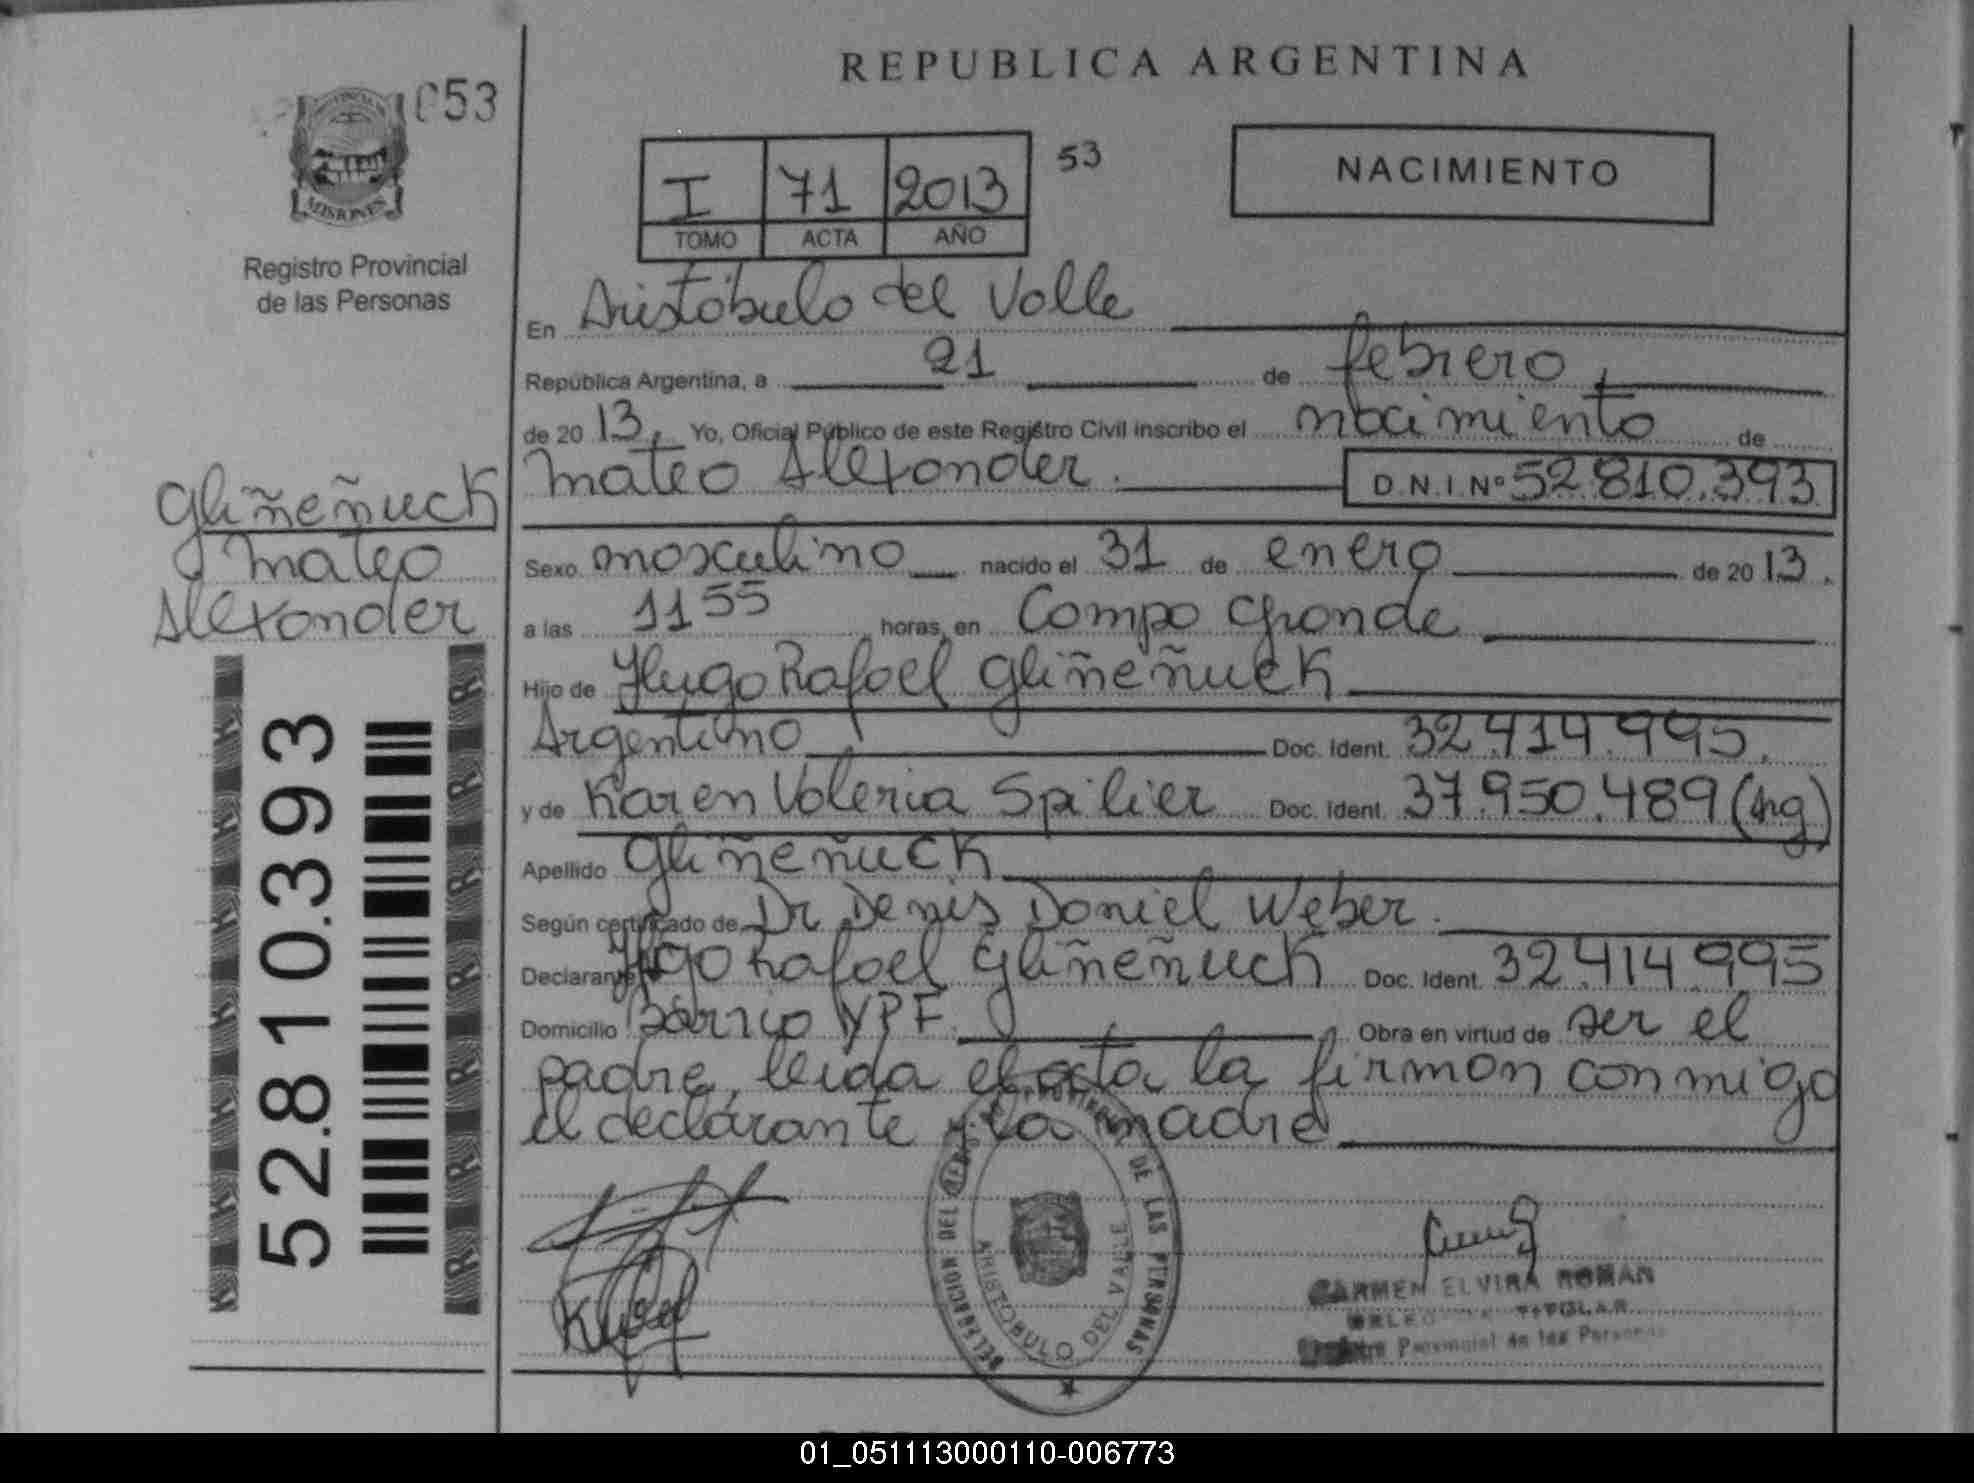 REPUBLICA ARGENTINA
053
PROVINCIA DE
MISIONES
Registro Provincial
de las Personas
I 71 2013
TOMO ACTA AÑO
53
NACIMIENTO
En Aristóbulo del Valle
República Argentina, a 21 de febrero
de 2013, Yo, Oficial Público de este Registro Civil inscribo el nacimiento de
Mateo Alexander. D.N.I.Nº 52.810.393
Gliñeñuck
Mateo
Alexander
Sexo masculino nacido el 31 de enero de 2013.
a las 1155 horas, en Campo Grande
Hijo de Hugo Rafael Gliñeñuck
Argentino Doc. Ident. 32.414.995.
y de Karen Valeria Spilier Doc. Ident. 37.950.489 (Arg)
Apellido Gliñeñuck
Según certificado de Dr Denis Daniel Weber.
Declarante Hugo Rafael Gliñeñuck Doc. Ident. 32.414.995
Domicilio Barrio YPF. Obra en virtud de ser el
padre, leida el acta la firman conmigo
el declarante y la madre
52.810.393
DELEGACION DEL REGISTRO PROVINCIAL DE LAS PERSONAS
ARISTOBULO DEL VALLE
CARMEN ELVIRA ROMAN
DELEGADA TITULAR
Registro Provincial de las Personas
01_051113000110-006773